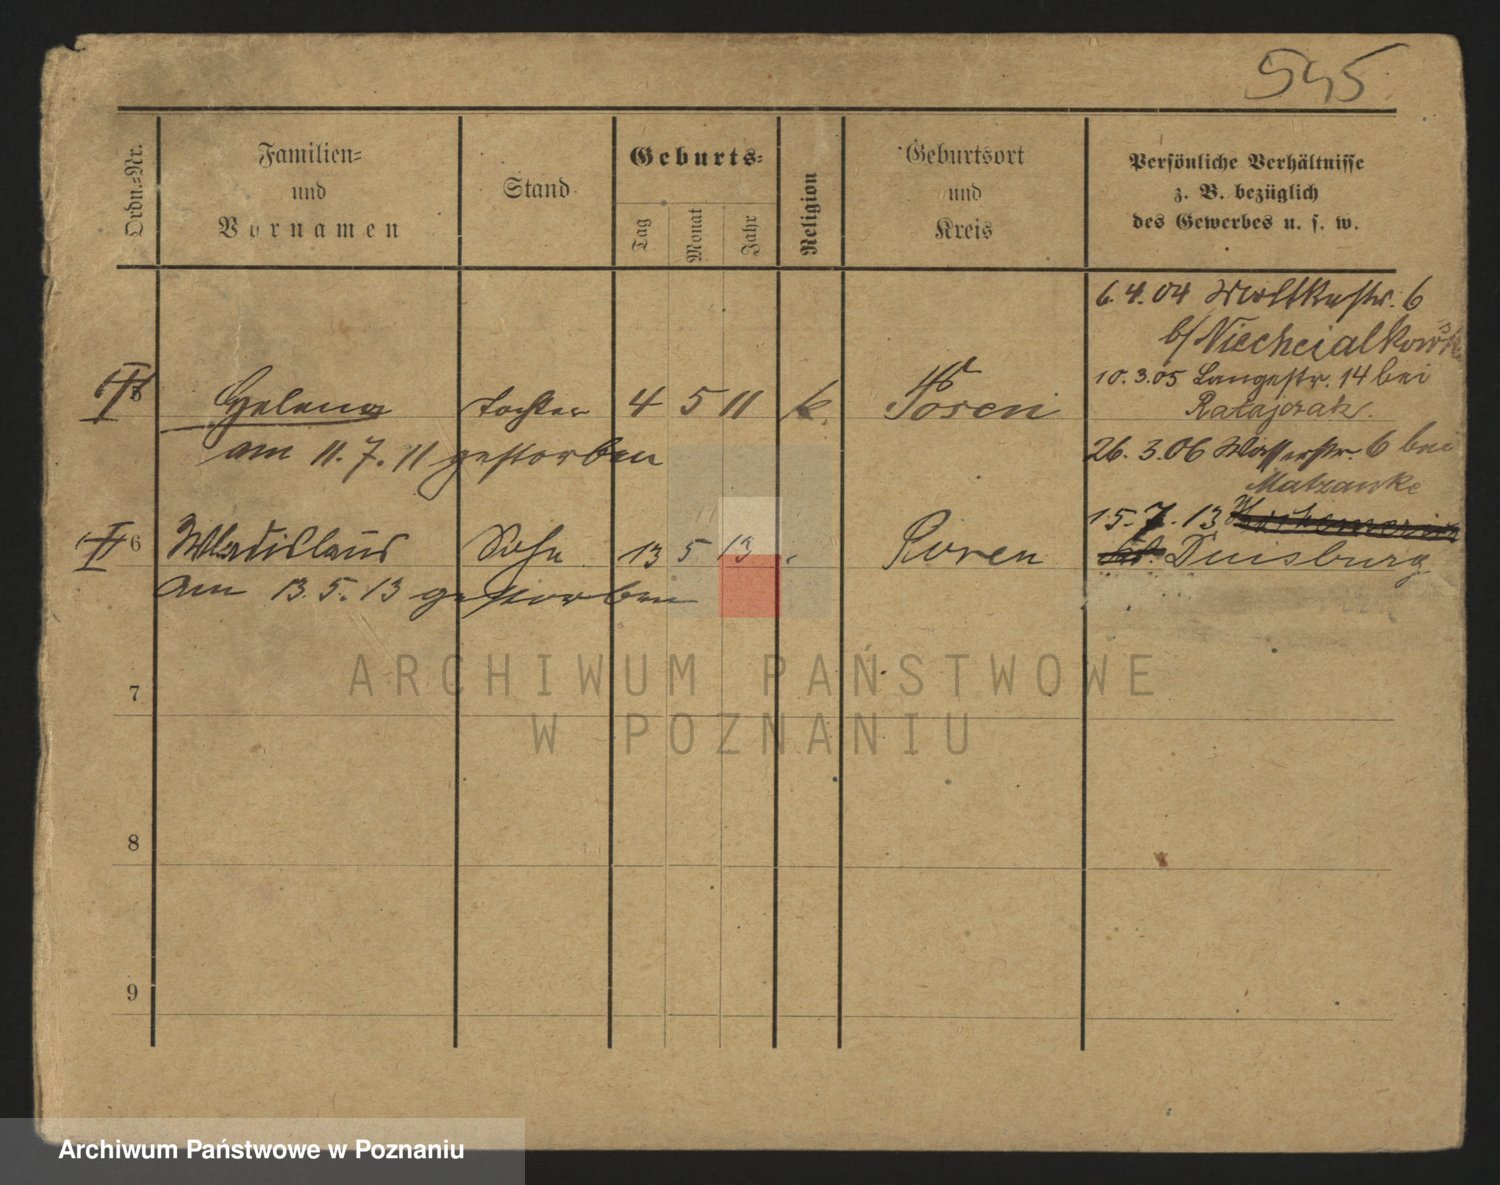 545
Ordn.-Nr.
Familien-
und
Vornamen
Stand
Geburts-
Tag
Monat
Jahr
Religion
Geburtsort
und
Kreis
Persönliche Verhältnisse
z. B. bezüglich
des Gewerbes u. s. w.
6.4.04 Moltkestr. 6
b/ Niechcialkowski
10.3.05 Langestr. 14 bei
Ratajczak.
5 Helena Tochter 4 5 11 k. Posen
am 11.7.11 gestorben
26.3.06 Wasserstr. 6 bei
Matzanke
15.7.13
6 Wladislaus Sohn 13 5 13 Posen
Duisburg
am 13.5.13 gestorben
7
ARCHIWUM PAŃSTWOWE
W POZNANIU
8
9
Archiwum Państwowe w Poznaniu